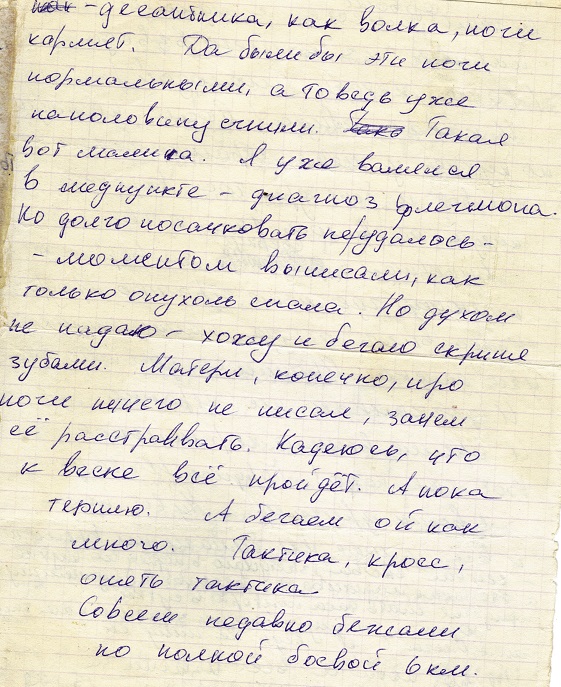 - десантника, как волка, ноги
кормят. Да были бы эти ноги
нормальными, а то ведь уже
наполовину сгнили. Такая
вот малина. Я уже валялся
в медпункте - диагноз флегмона.
Но долго посачковать не удалось -
- моментом выписали, как
только опухоль спала. Но духом
не падаю - хожу и бегаю скрипя
зубами. Матери, конечно, про
ноги ничего не писал, зачем
её расстраивать. Надеюсь, что
к весне всё пройдёт. А пока
терплю. А бегаем ой как
много. Тактика, кросс,
опять тактика
Совсем недавно бежали
по полной боевой 6 км.